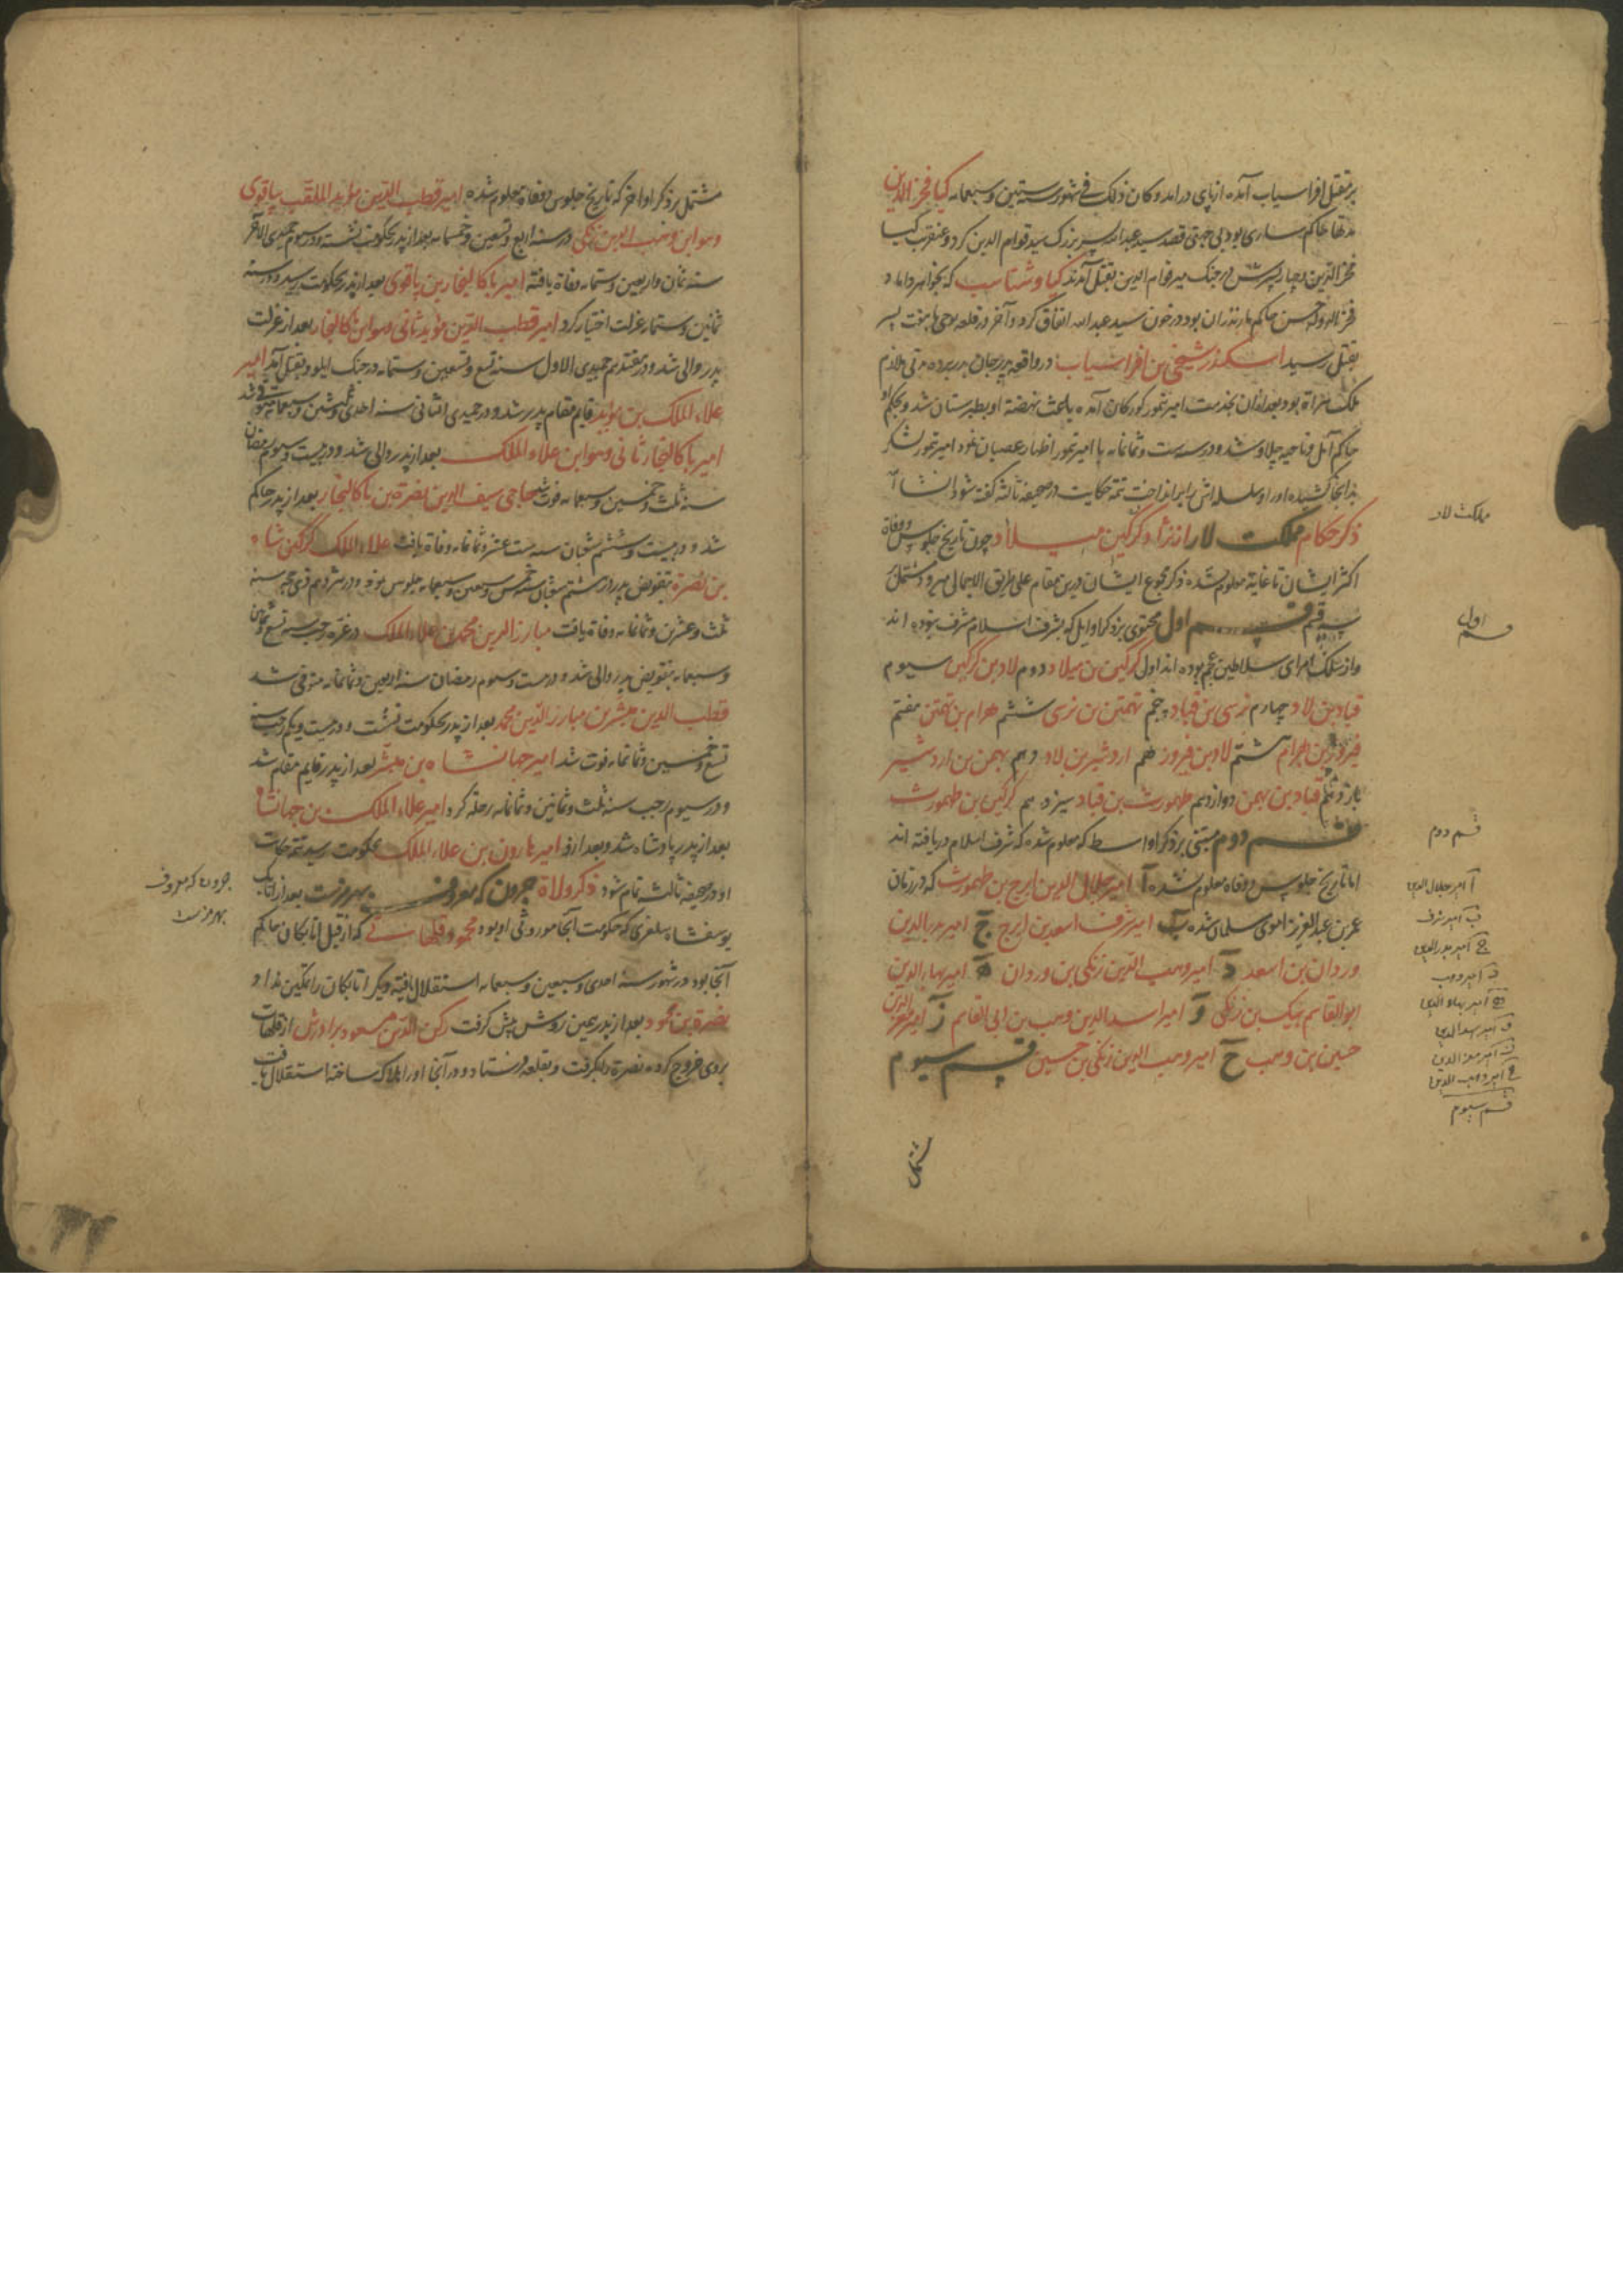 بر بقتل افراسیاب آمده از پای درآمد و کان ذلک فی شهور ستین و سبعمایه کیا فخرالدین
مدتها حاکم ساری بود بی جهتی قصد سید عبدالله پسر بزرگ سید قوام الدین کرد و عنقریب کیا
فخرالدین و چهار پسرش در جنک میر قوام الدین بقتل آمدند کیا وشتاسب که خواهر داماد
فخرالدوله حسن حاکم مازندران بود در خون سید عبدالله اتفاق کرد و آخر در قلعه توجی با هفت پسر
بقتل رسید اسکندر شیخی بن افراسیاب در واقعه پدر جان بدر برده مدتی ملازم
ملک هراة بود بعد ازان بخدمت امیر تیمور کورکان آمده باعث نهضة او بطبرستان شد و بحکم او
حاکم آمل و ناحیه چلاو شد و در سنه ست و ثمانمایه با امیر تیمور اظهار عصیان نمود امیر تیمور لشکر
بدانجا کشیده او را و سلسله اش را برانداخت تتمه حکایت در صحیفه ثالثه گفته شود انشاآ
ذکر حکام مملکت لار از نژاد کرکین میلاد چون تاریخ جلوس و وفاة
اکثر ایشان تا غایة معلوم نشده ذکر مجموع ایشان درین مقام علی طریق الاجمال میرود مشتمل
بسه قسم قسم اول محتوی بر ذکر اوایل که بشرف اسلام مشرف نبوده اند
و از سلک امرای سلاطین عجم بوده اند اول کرکین بن میلاد دوم لاد بن کرکین سیوم
قباد بن لاد چهارم نرسی بن قباد پنجم تهمتن بن نرسی ششم بهرام بن تهمتن هفتم
فیروز بن بهرام هشتم لاد بن فیروز نهم اردشیر بن لاد دهم بهمن بن اردشیر
یازدهم قباد بن بهمن دوازدهم طهمورث بن قباد سیزدهم کرکین بن طهمورث
قسم دوم مبتنی بر ذکر اواسط که معلوم شده که شرف اسلام دریافته اند
اما تاریخ جلوس و وفاة معلوم نشده آ امیر جلال الدین ایرج بن طهمورث که در زمان
عمر بن عبدالعزیز اموی مسلمان شده ب امیر شرف اسعد بن ایرج ج امیر بدرالدین
وردان بن اسعد د امیر وهب الدین زنکی بن وردان ه امیر بهاءالدین
ابوالقاسم بیک بن زنکی و امیر اسدالدین وهب بن ابی القاسم ز امیر معزالدین
حسین بن وهب ح امیر وهب الدین زنکی بن حسین قسم سیوم
مشتمل
مملکت لار
قسم اول
قسم دوم
آ امیر جلال الدین
ب امیر شرف
ج امیر بدرالدین
د امیر وهب
ه امیر بهاءالدین
و امیر اسدالدین
ز امیر معزالدین
ح امیر وهب الدین
قسم سیوم
مشتمل بر ذکر اواخر که تاریخ جلوس و وفاة معلوم شده امیر قطب الدین مؤید الملقب بپاقوی
وهو ابن وهب الدین زنکی در سنه اربع و تسعین و خمسمایه بعد از پدر بحکومت نشست و در سیوم جمیدی الآخر
سنه ثمان و اربعین و ستمایه وفاة یافته امیر باکالیجار بن پاقوی بعد از پدر بحکومت رسید و در سنه
ثمانین و ستمایه عزلت اختیار کرد امیر قطب الدین مؤید ثانی وهو ابن کالیجار بعد از عزلت
پدر والی شد و در هفتدهم جمیدی الاول سنه تسع و تسعین و ستمایه در جنک ایلو بقتل آمد امیر
علاء الملک بن مؤید قایم مقام پدر شد و در جمیدی الثانی سنه احدی و ثلثین و سبعمایه متوفی شد
امیر باکالیجار ثانی وهو ابن علاء الملک بعد از پدر والی شد و در بیست و سیوم رمضان
سنه ثلث و خمسین و سبعمایه فوت شد حاجی سیف الدین نصرة بن باکالیجار بعد از پدر حاکم
شد و در بیست و ششم شعبان سنه ست عشر و ثمانمایه وفاة یافت علاء الملک کرکین شاه
بن نصرة بتفویض پدر در هشتم شعبان سنه خمس و سبعین و سبعمایه جلوس نمود و در هژدهم ذی حجه سنه
ثلث و عشرین و ثمانمایه وفاة یافت مبارز الدین محمد بن علاء الملک در غره رجب سنه تسع و ثمانین
و سبعمایه بتفویض پدر والی شد و در بیست و سیوم رمضان سنه اربعین و ثمانمایه متوفی شد
قطب الدین مبشر بن مبارز الدین محمد بعد از پدر بحکومت نشست و در بیست و یکم رجب سنه
تسع و خمسین و ثمانمایه فوت شد امیر جهانشاه بن مبشر بعد از پدر قایم مقام شد
و در سیوم رجب سنه ثلث و ثمانین و ثمانمایه رحلة کرد امیر علاء الملک بن جهانشاه
بعد از پدر پادشاه شد و بعد ازو امیر هارون بن علاء الملک بحکومت رسید تتمه حکایت
او در صحیفه ثالث تمام شود ذکر ولاة جرون که معروف بهرمزست بعد از اتابک
یوسفشاه سلغری که حکومت آنجا موروثی او بود محمود قلهاتی که از قبل اتابکان حاکم
آنجا بود در شهور سنه احدی و سبعین و سبعمایه استقلال یافته دیگر اتابکان را تمکین نداد
نصرة بن محمود بعد از پدر بهمین روش پیش کرفت رکن الدین مسعود برادرش از قلهات
بروی خروج کرده نصرة را بکرفت و بقلعه فرستاد و در آنجا او را هلاک ساخته استقلال یافت
جرون که معروف
بهرمزست